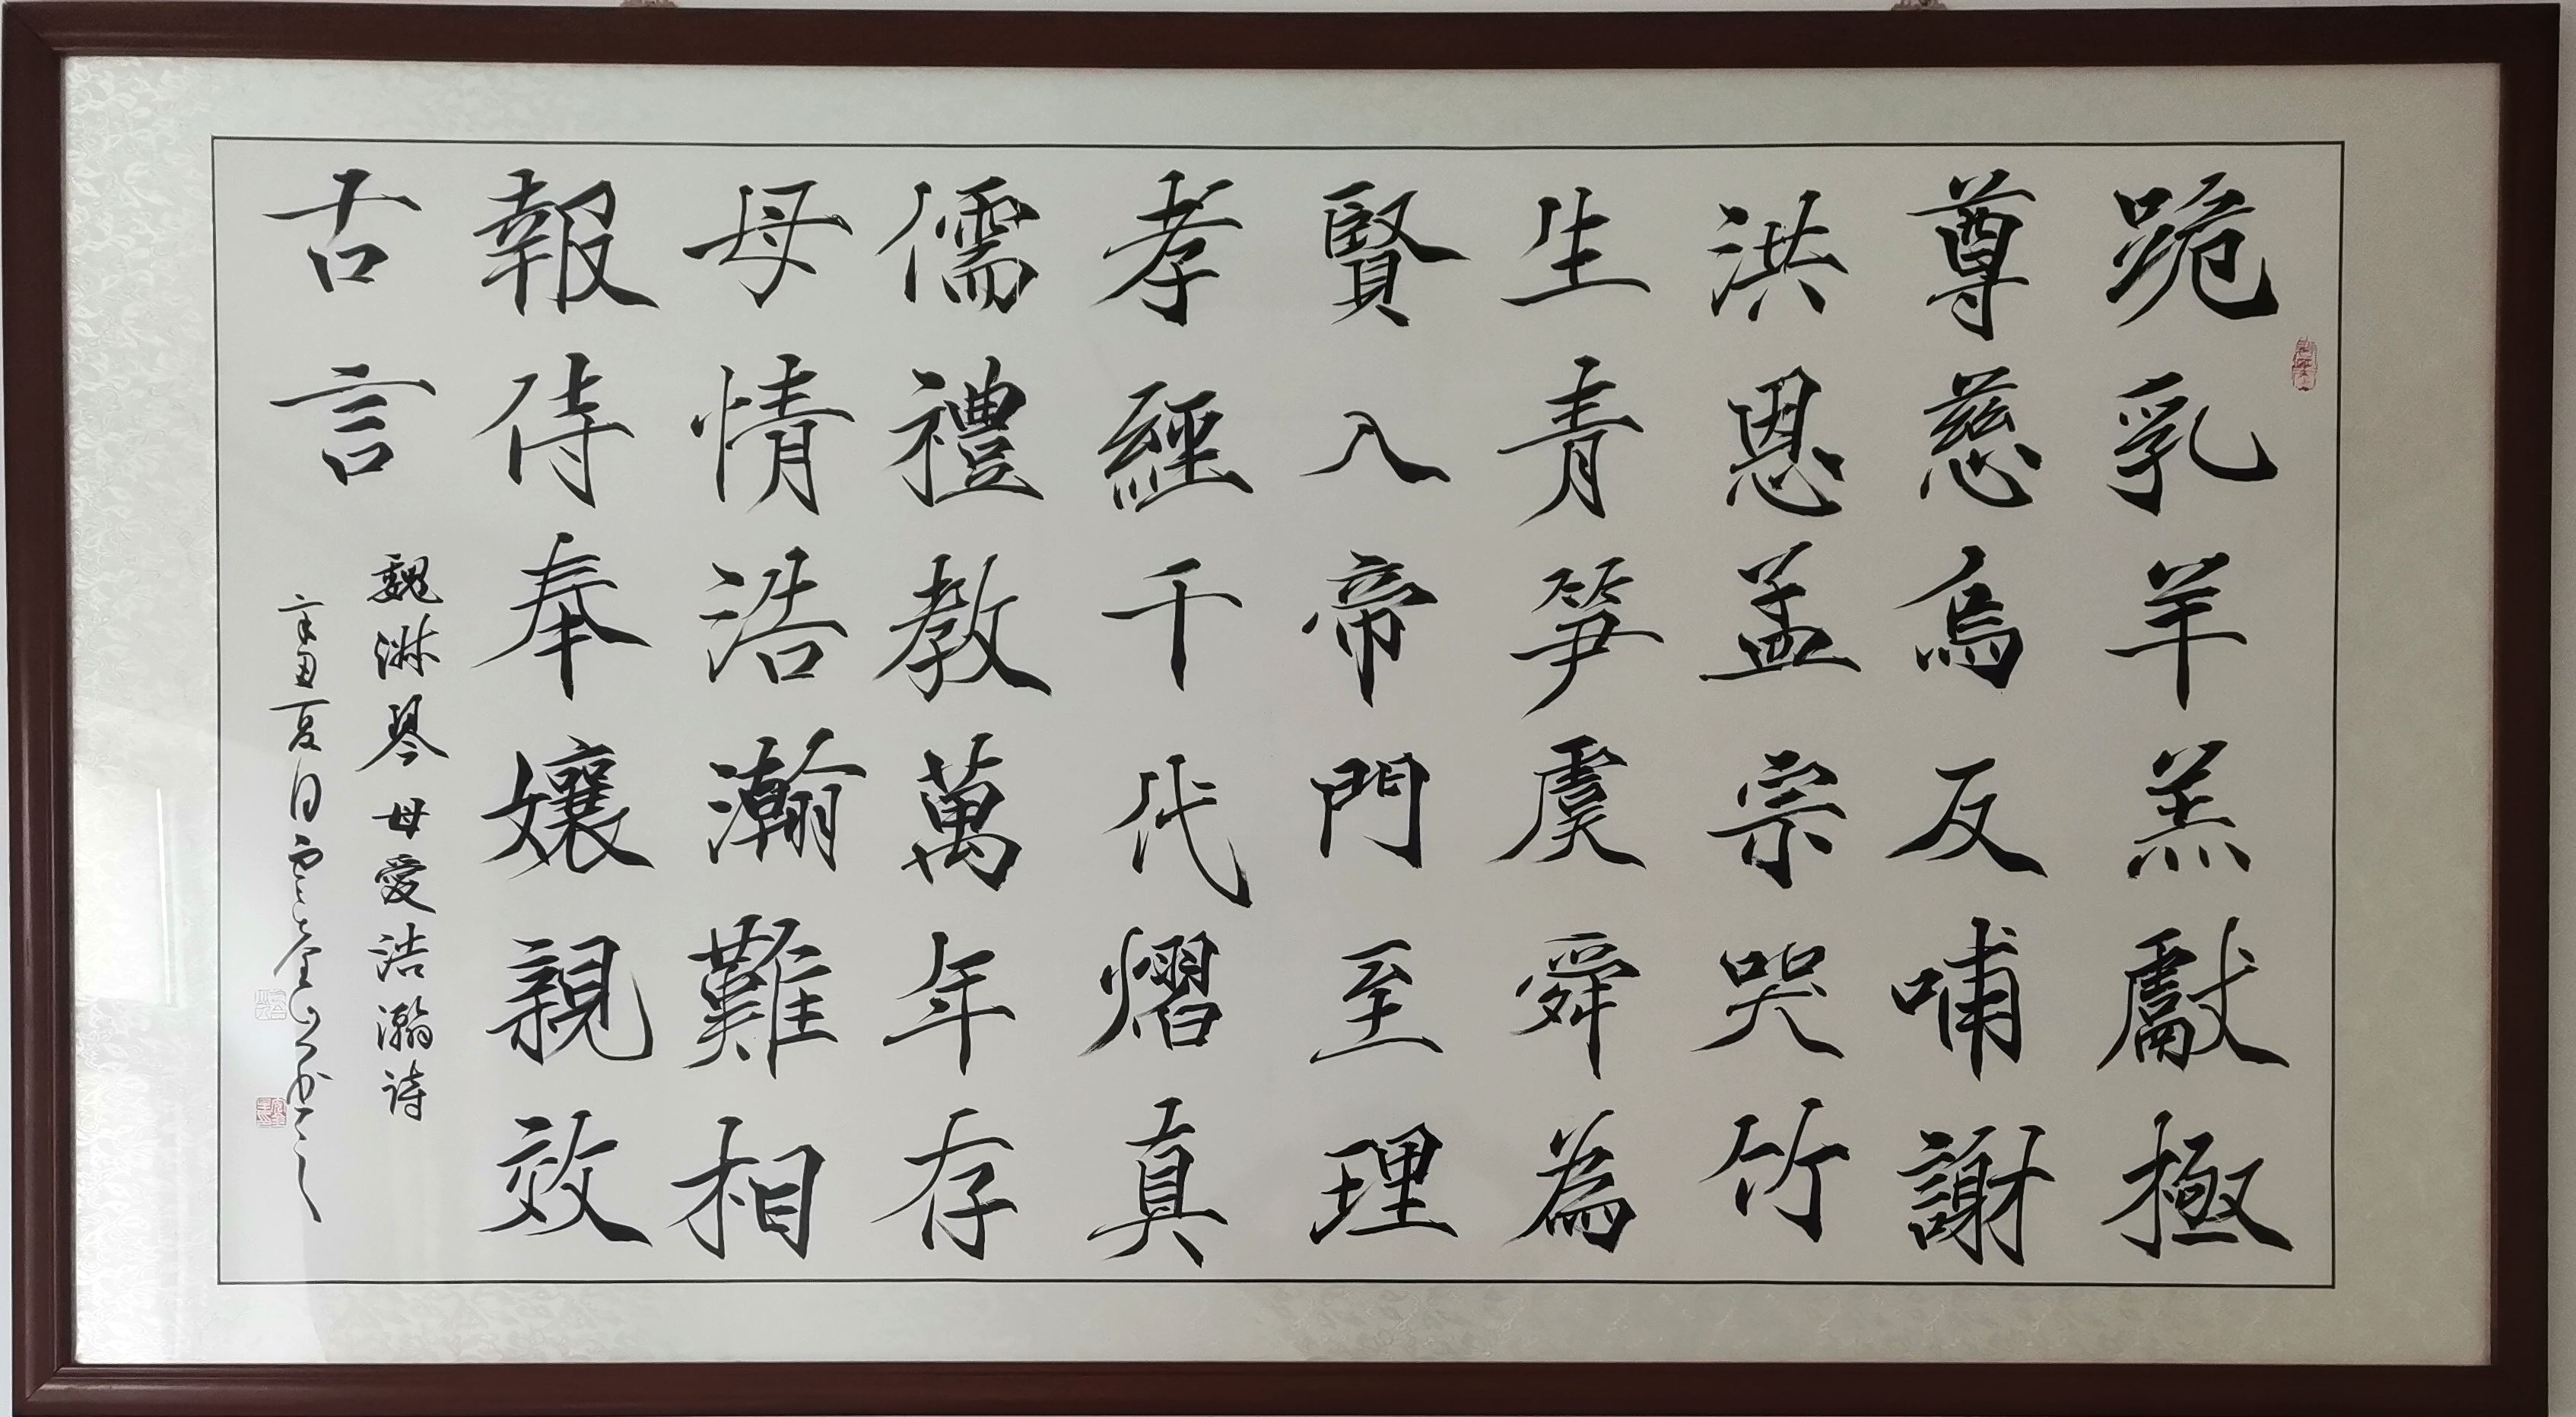 跪乳羊羔獻極
尊慈烏反哺謝
洪恩孟宗哭竹
生青笋虞舜為
賢入帝門至理
孝經千代熠真
儒禮教萬年存
母情浩瀚難相
報侍奉孃親效
古言
魏淋琴母愛浩瀚诗
辛丑夏日